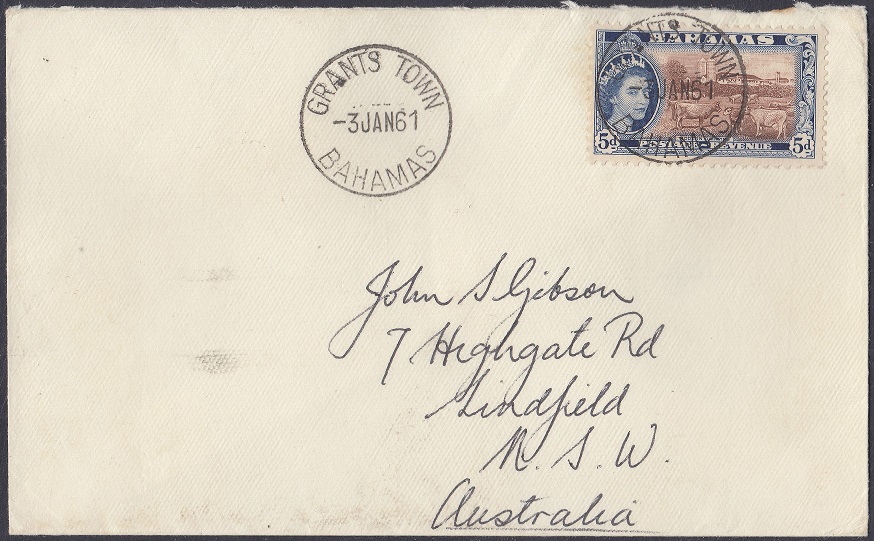 GRANTS TOWN
-3JAN61
BAHAMAS
BAHAMAS
GRANTS TOWN
-3JAN61
BAHAMAS
5d
POSTAGE REVENUE
5d
John S Gibson
7 Highgate Rd
Lindfield
N. S. W.
Australia